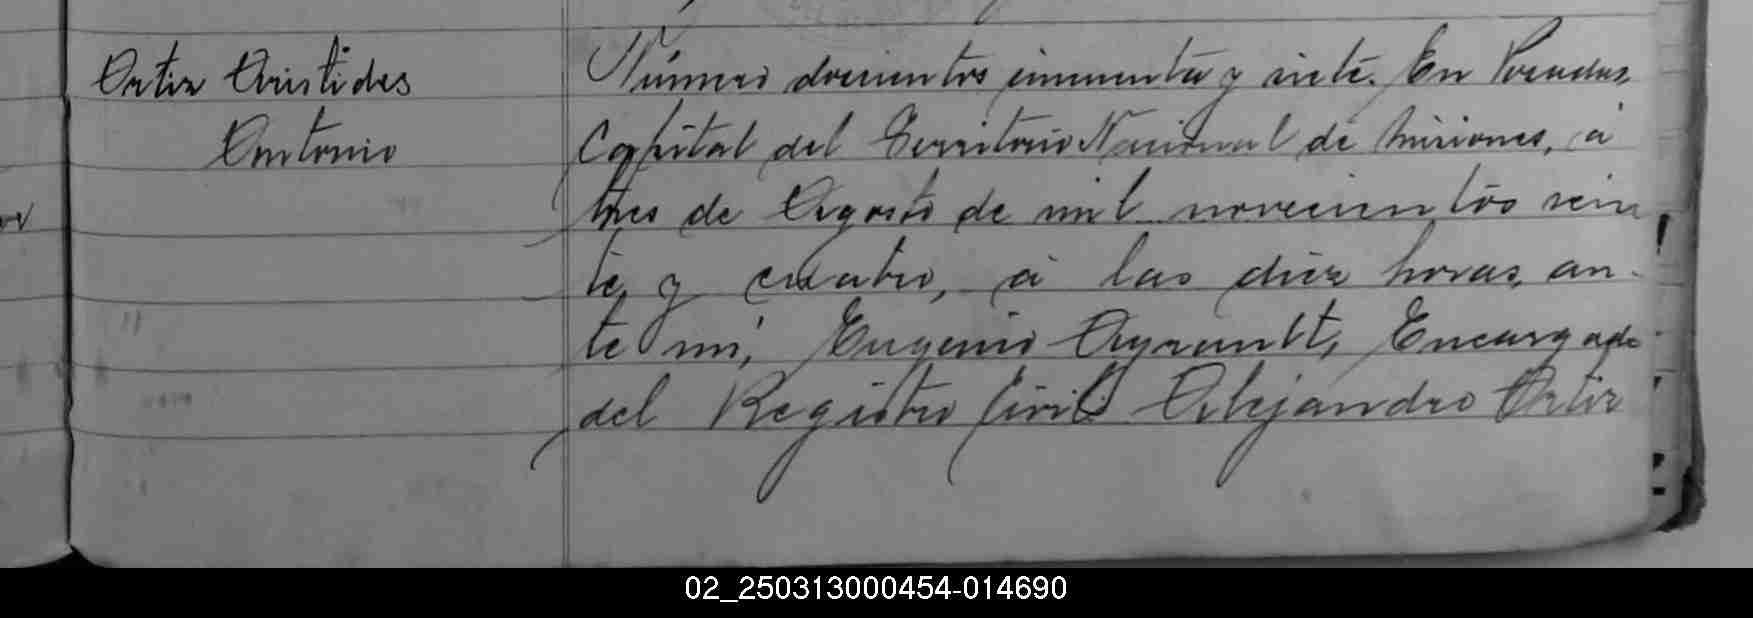 Ortiz Aristides
Antonio
Número doscientos cincuenta y siete. En Posadas,
Capital del Territorio Nacional de Misiones, á
tres de Agosto de mil novecientos vein
te y cuatro, á las diez horas, an-
te mi, Eugenio Ayrault, Encargado
del Registro Civil Alejandro Ortiz
02_250313000454-014690